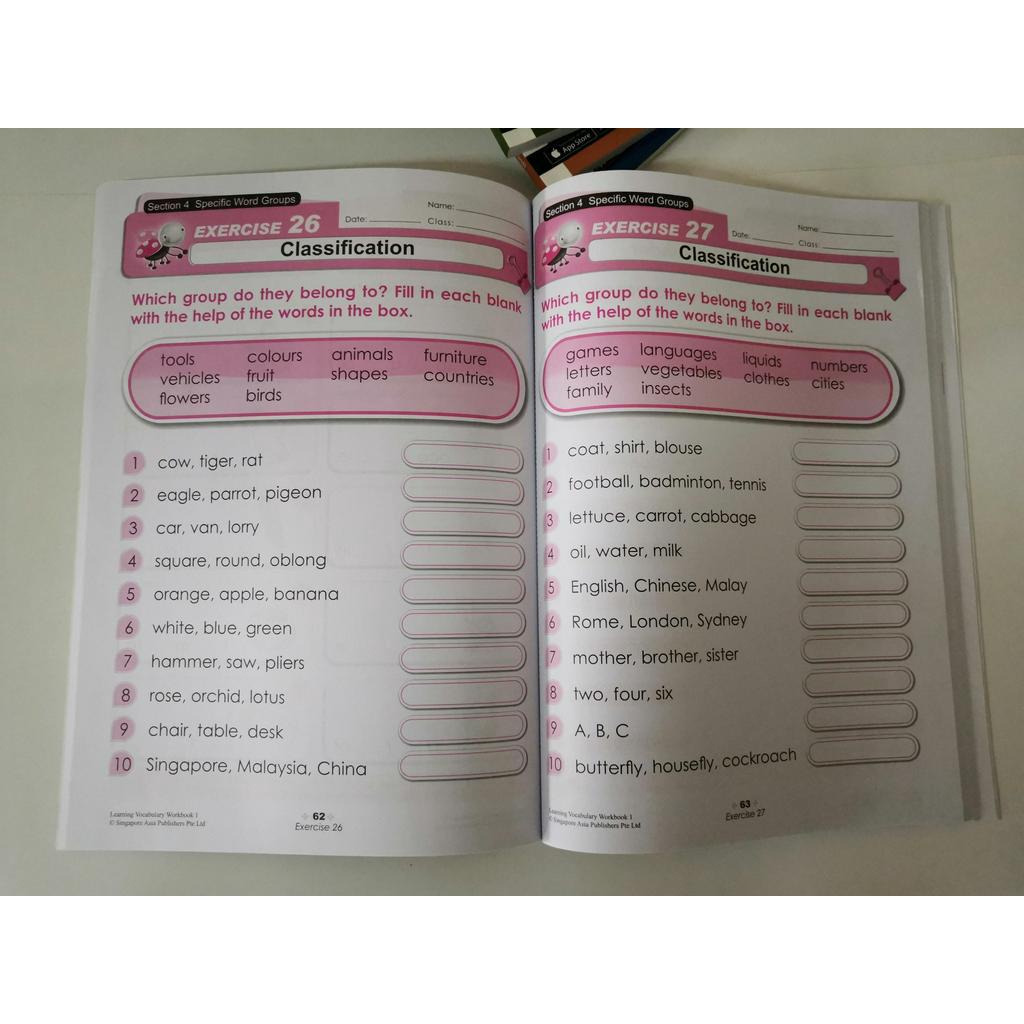 App Store
Section 4 Specific Word Groups
Name:
EXERCISE 26
Date: Class:
Classification
Which group do they belong to? Fill in each blank
with the help of the words in the box.
tools colours animals furniture
vehicles fruit shapes countries
flowers birds
1 cow, tiger, rat
2 eagle, parrot, pigeon
3 car, van, lorry
4 square, round, oblong
5 orange, apple, banana
6 white, blue, green
7 hammer, saw, pliers
8 rose, orchid, lotus
9 chair, table, desk
10 Singapore, Malaysia, China
Learning Vocabulary Workbook 1
© Singapore Asia Publishers Pte Ltd
62
Exercise 26
Section 4 Specific Word Groups
Name:
EXERCISE 27
Date: Class:
Classification
Which group do they belong to? Fill in each blank
with the help of the words in the box.
games languages liquids numbers
letters vegetables clothes cities
family insects
1 coat, shirt, blouse
2 football, badminton, tennis
3 lettuce, carrot, cabbage
4 oil, water, milk
5 English, Chinese, Malay
6 Rome, London, Sydney
7 mother, brother, sister
8 two, four, six
9 A, B, C
10 butterfly, housefly, cockroach
Learning Vocabulary Workbook 1
© Singapore Asia Publishers Pte Ltd
63
Exercise 27